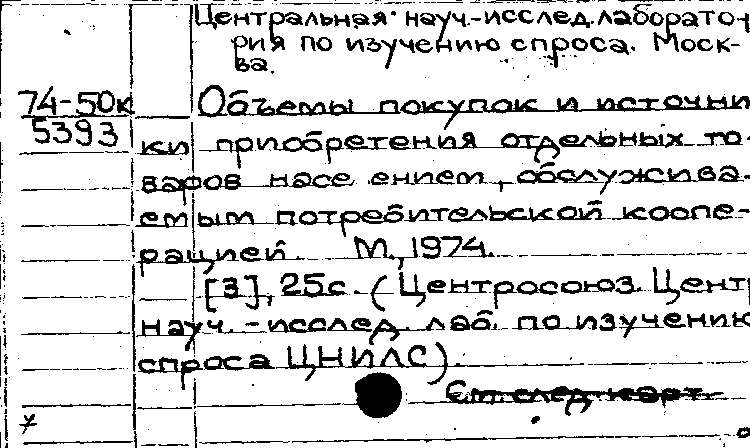 Центральная науч.-исслед. лаборато-
рия по изучению спроса. Моск-
ва.
74-50к Объемы покупок и источни
5393 ки приобретения отдельных то-
варов насе ением, обслужива-
емым потребительской коопе-
рацией. М., 1974.
[3], 25с. (Центросоюз. Центр
науч.-исслед. лаб. по изучению
спроса ЦНИЛС).
См. след. карт.